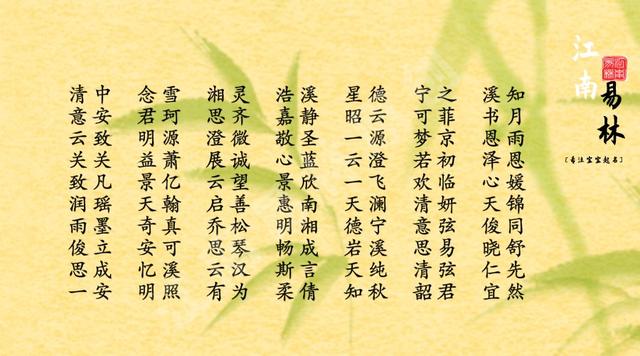 江南
易林
【专注宝宝起名】
知月雨恩媛锦同舒先然
溪书恩泽心天俊晓仁宜
之菲京初临妍弦易弦君
宁可梦若欢清意思清韶
德云源澄飞澜宁溪纯秋
星昭一云一天德岩天知
溪静圣蓝欣南湘成言倩
浩嘉敔心景惠明畅斯柔
灵齐微诚望善松琴汉为
湘思澄展云启乔思云有
雪珂源萧亿翰真可溪照
念君明益景天奇安忆明
中安致关凡瑶墨立成安
清意云关致润雨俊思一